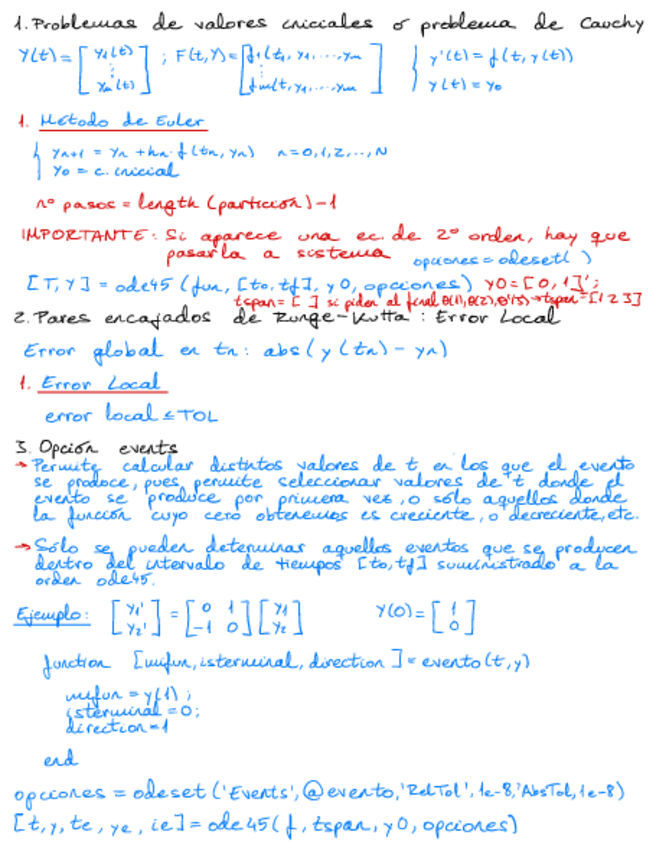 1. Problemas de valores iniciales o problema de Cauchy
Y(t) = [ y1(t) ⋮ yn(t) ] ; F(t,Y) = [ f1(t1, y1, ..., ym ⋮ fm(t, y1, ..., ym ] { y'(t) = f(t, y(t)) y(t) = y0
1. Método de Euler
{ yn+1 = yn + hn · f(tn, yn) n = 0, 1, 2, ..., N
y0 = c. inicial
nº pasos = length (partición) - 1
IMPORTANTE: Si aparece una ec. de 2º orden, hay que
pasarla a sistema
opciones = odeset( )
[T, Y] = ode45 (fun, [t0, tf], y0, opciones) y0 = [0, 1]';
tspan = [ ] si piden al final θ(1), θ(2), θ'(3) → tspan = [1 2 3]
2. Pares encajados de Runge-Kutta : Error Local
Error global en tn: abs (y(tn) - yn)
1. Error Local
error local ≤ TOL
3. Opción events
→ Permite calcular distintos valores de t en los que el evento
se produce, pues permite seleccionar valores de t donde el
evento se produce por primera vez, o sólo aquellos donde
la función cuyo cero obtenemos es creciente, o decreciente, etc.
→ Sólo se pueden determinar aquellos eventos que se producen
dentro del intervalo de tiempos [t0, tf] suministrado a la
orden ode45.
Ejemplo: [ y1' y2' ] = [ 0 1 -1 0 ] [ y1 y2 ] Y(0) = [ 1 0 ]
function [mifun, isterminal, direction] = evento(t, y)
mifun = y(1);
isterminal = 0;
direction = 1
end
opciones = odeset ('Events', @evento, 'RelTol', 1e-8, 'AbsTol, 1e-8)
[t, y, te, ye, ie] = ode45(f, tspan, y0, opciones)